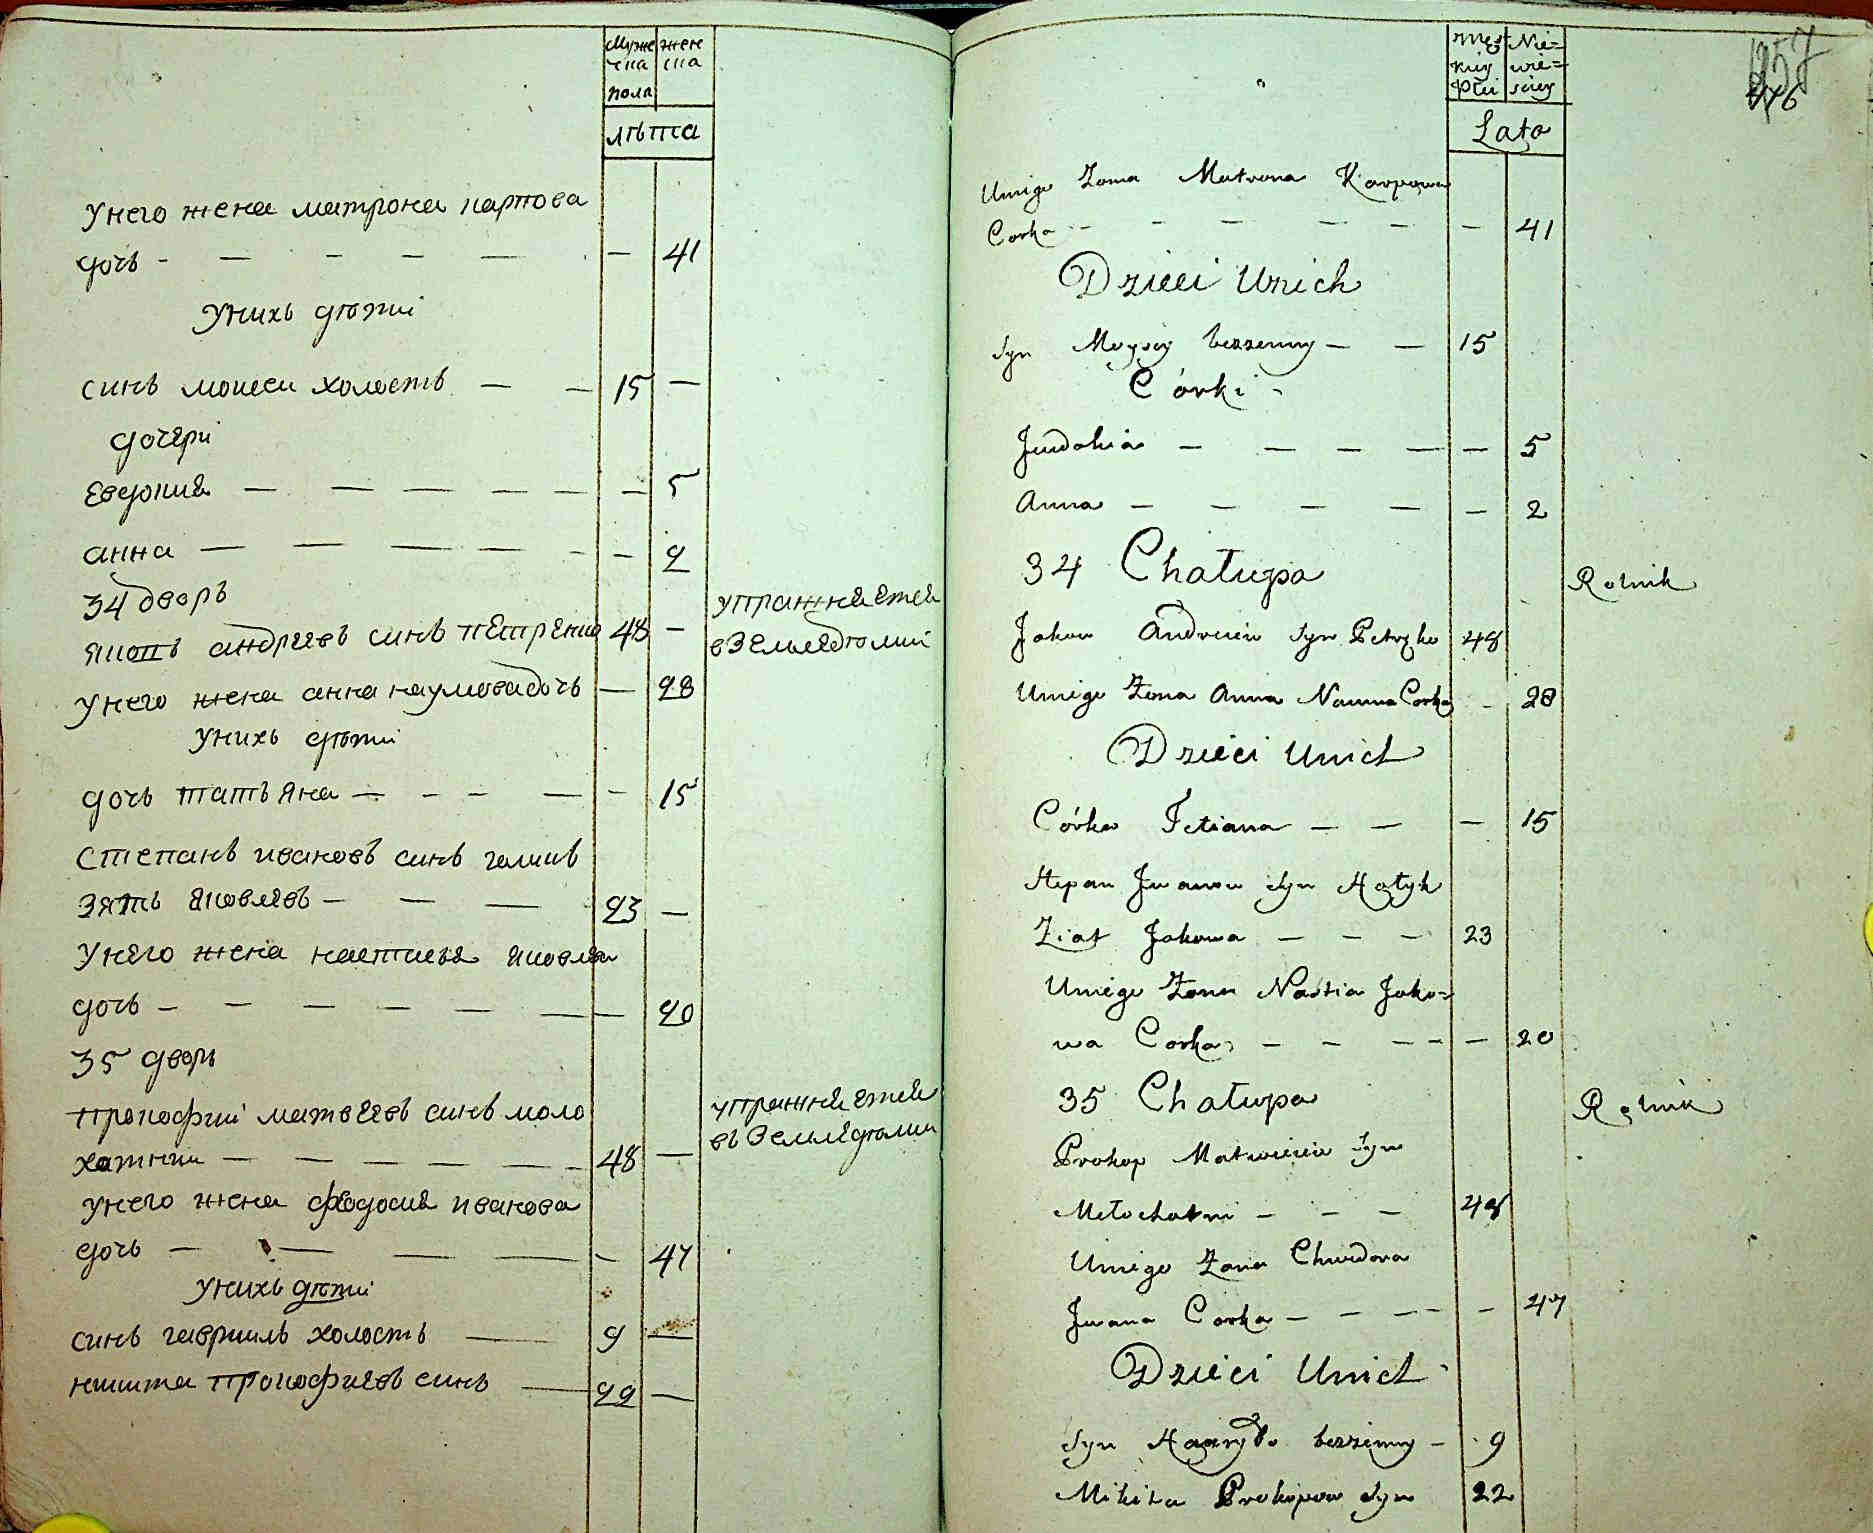 Муже жен
ска ска
пола
лѣта
У него жена матрона карпова
дочь - - - - - - 41
У нихъ дѣти
синъ моисеи холостъ - - 15 -
дочери
Евдокия - - - - - - 5
анна - - - - - - 2
34 дворъ
упражняется
яковъ андреевъ синъ петренко 48 -
в земледелии
У него жена анна наумова дочь - 28
У нихъ дѣти
дочь татьяна - - - - - 15
Степанъ ивановъ синъ
зять яковлевъ - - - 23 -
У него жена настасия яковлева
дочь - - - - - - - 20
35 дворъ
прокофий матвеевъ синъ моло
упражняется
въ земледелии
хатний - - - - - - 48 -
У него жена феодосия иванова
дочь - - - - - 47
У нихъ дѣти
синъ гавриилъ холостъ - 9 -
никита прокофиевъ синъ - 22 -
męz Nie=
kiey wie=
płci sciey
Lata
257
476
Uniego Zona Matrona Karpowa
Corka - - - - - - 41
Dzieci Unich
Syn Moysey bezzenny - - 15
Córki -
Jewdokia - - - - - 5
Anna - - - - - 2
34 Chałupa
Rolnik
Jakow Andreiew Syn Petręko 48
Uniego Zona Anna Nauma Corka - 28
Dzieci Unich
Córka Tetiana - - - 15
Stepan Jwanow Syn
Ziat Jakowa - - - 23
Uniego Zona Nastia Jako=
wa Corka - - - - - 20
35 Chałupa
Rolnik
Prokop Matwieiew Syn
Mołochatni - - - 48
Uniego Zona Chwedora
Jwana Corka - - - - - 47
Dzieci Unich
Syn Hawryło bezzenny - 9
Mikita Prokopow Syn 22